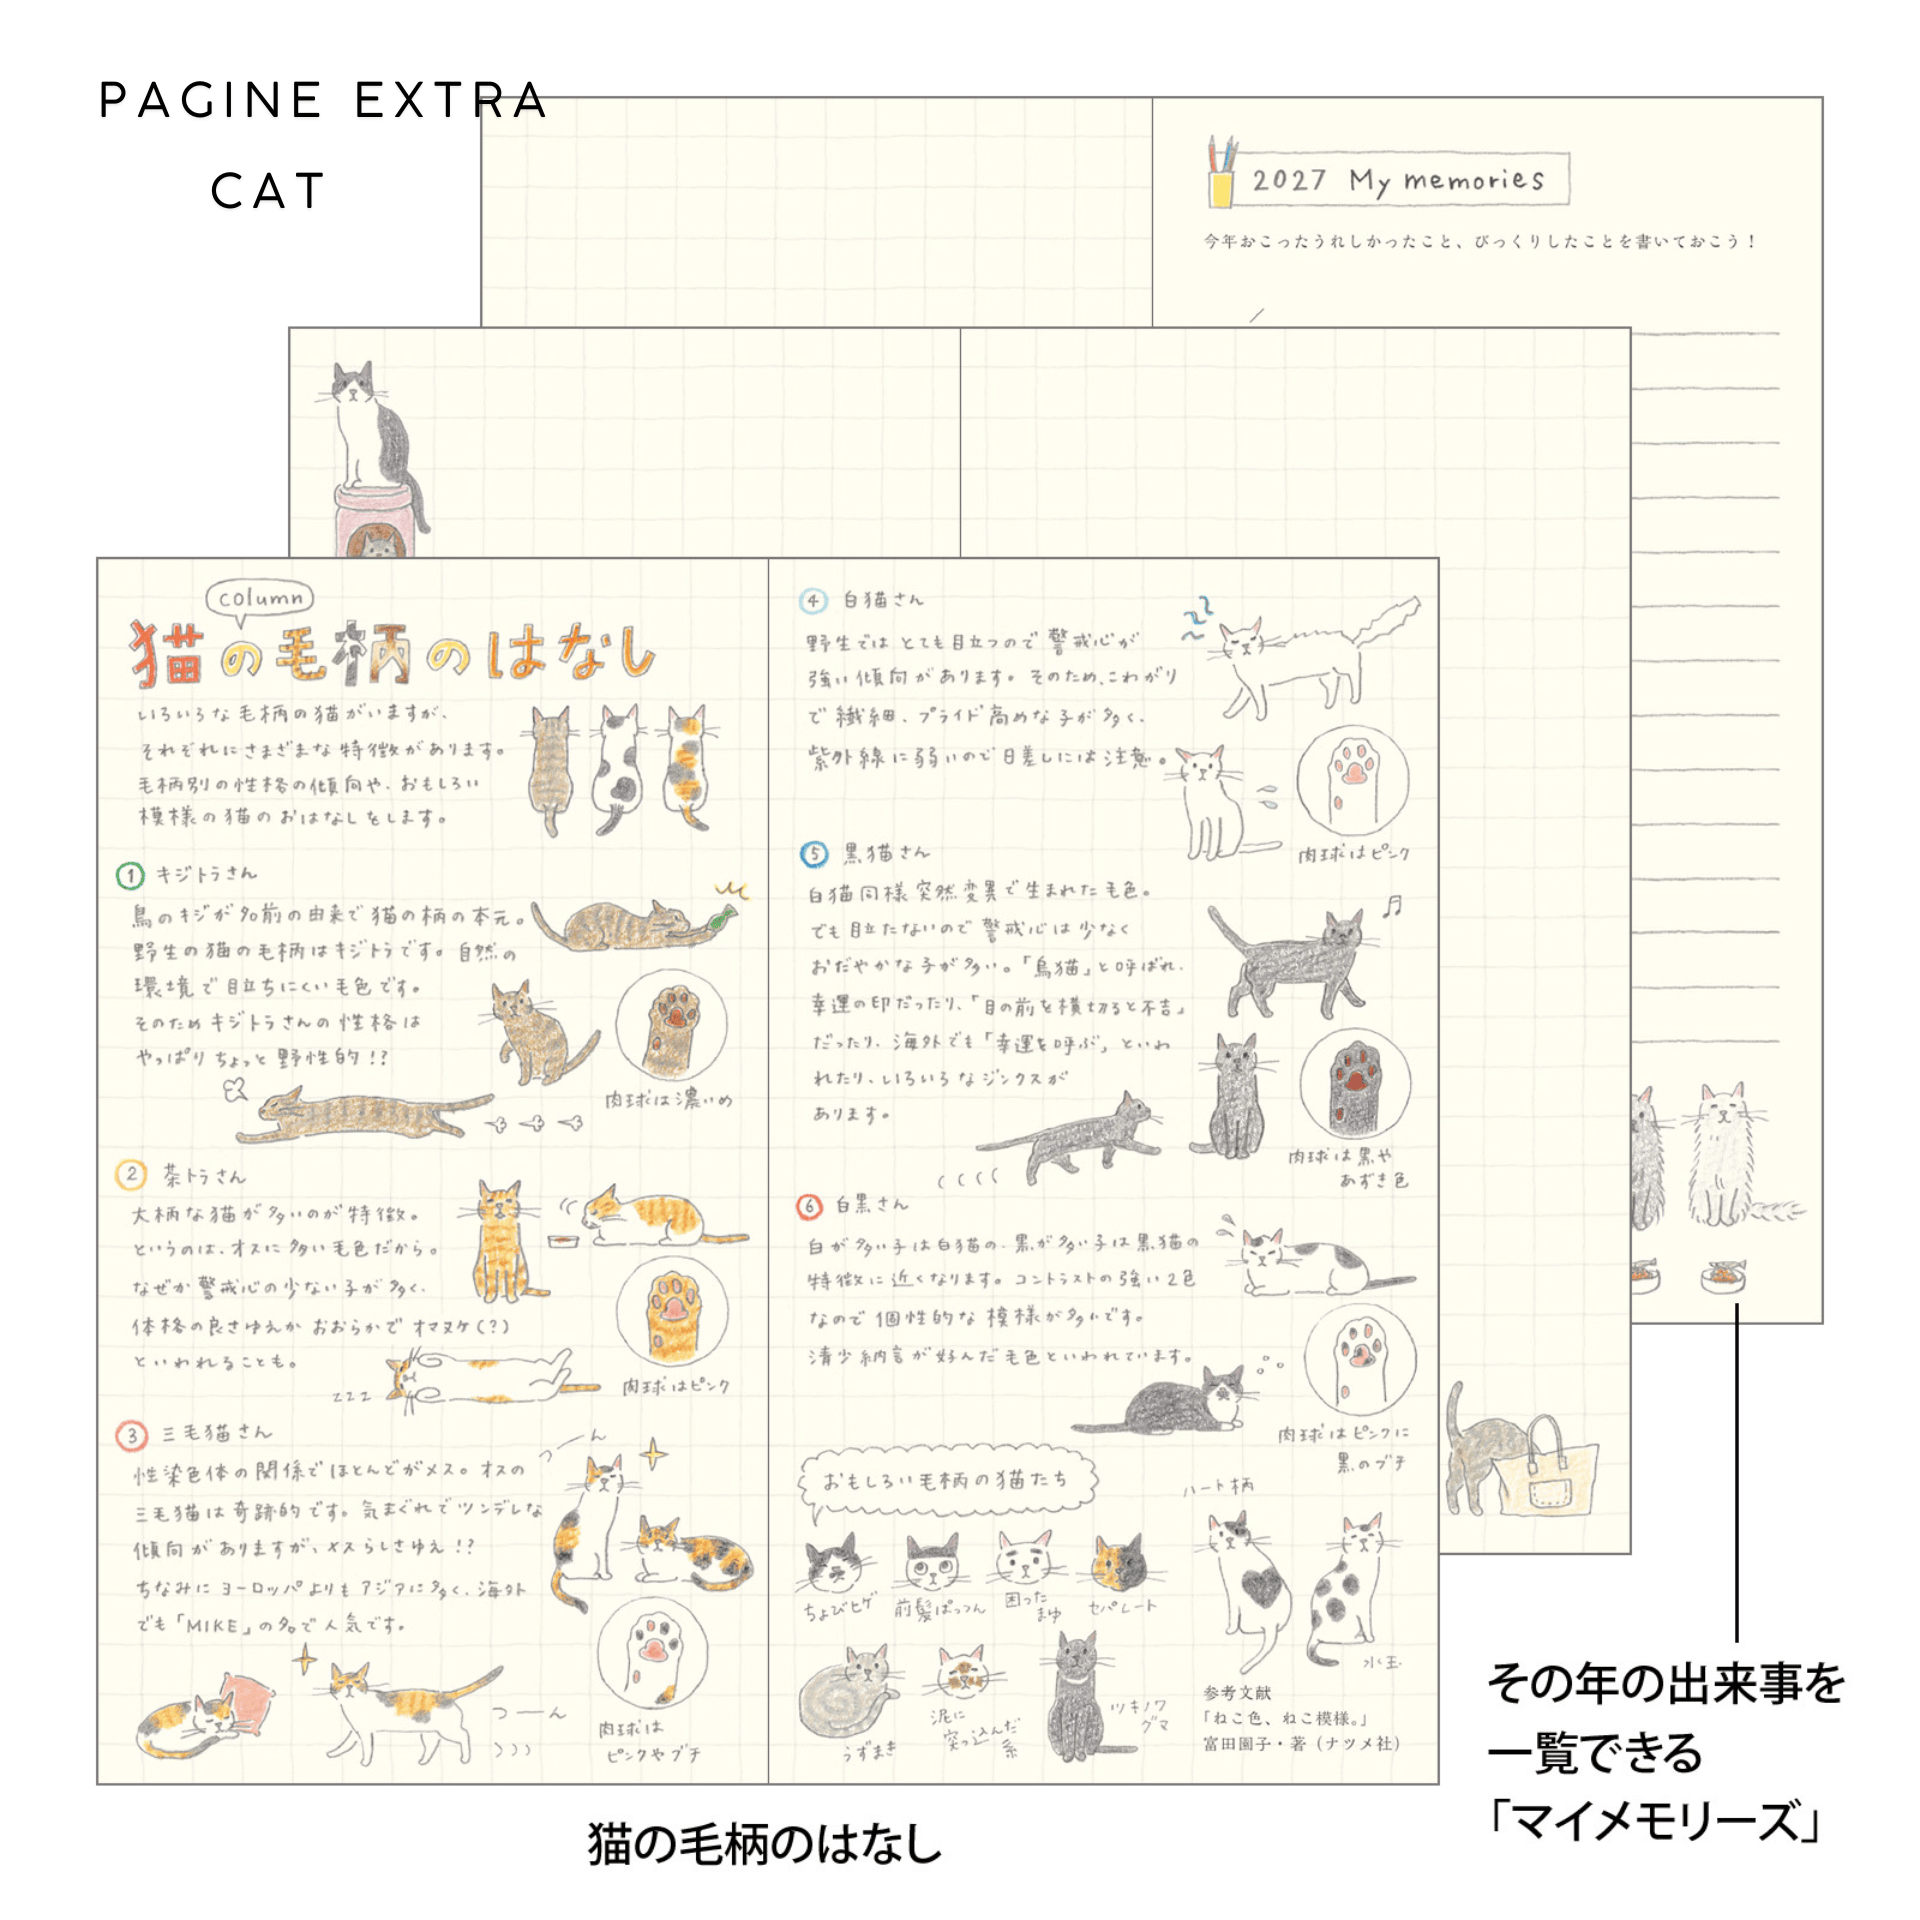 PAGINE EXTRA
CAT
2027 My memories
今年おこったうれしかったこと、びっくりしたことを書いておこう！
column
猫の毛柄のはなし
いろいろな毛柄の猫がいますが、
それぞれにさまざまな特徴があります。
毛柄別の性格の傾向や、おもしろい
模様の猫のおはなしをします。
① キジトラさん
鳥のキジが名前の由来で猫の柄の本元。
野生の猫の毛柄はキジトラです。自然の
環境で目立ちにくい毛色です。
そのためキジトラさんの性格は
やっぱりちょっと野性的!?
肉球は濃いめ
② 茶トラさん
大柄な猫が多いのが特徴。
というのは、オスに多い毛色だから。
なぜか警戒心の少ない子が多く、
体格の良さゆえか おおらかで オマヌケ(?)
といわれることも。
zzz
肉球はピンク
③ 三毛猫さん
性染色体の関係でほとんどがメス。オスの
三毛猫は奇跡的です。気まぐれでツンデレな
傾向がありますが、メスらしさゆえ!?
ちなみにヨーロッパよりもアジアに多く、海外
でも「MIKE」の名で人気です。
つーん
つーん
肉球は
ピンクやブチ
④ 白猫さん
野生では とても目立つので 警戒心が
強い傾向があります。そのため、こわがり
で繊細、プライド高めな子が多く、
紫外線に弱いので日差しには注意。
肉球はピンク
⑤ 黒猫さん
白猫同様突然変異で生まれた毛色。
でも目立たないので警戒心は少なく
おだやかな子が多い。「烏猫」と呼ばれ、
幸運の印だったり、「目の前を横切ると不吉」
だったり、海外でも「幸運を呼ぶ」といわ
れたり、いろいろなジンクスが
あります。
肉球は黒や
あずき色
⑥ 白黒さん
白が多い子は白猫の、黒が多い子は黒猫の
特徴に近くなります。コントラストの強い2色
なので個性的な模様が多いです。
清少納言が好んだ毛色といわれています。
肉球はピンクに
黒のブチ
おもしろい毛柄の猫たち
ちょびヒゲ
前髪ぱっつん
困った
まゆ
セパレート
ハート柄
水玉
うずまき
泥に
突っ込んだ
系
ツキノワ
グマ
参考文献
「ねこ色、ねこ模様。」
富田園子・著（ナツメ社）
猫の毛柄のはなし
その年の出来事を
一覧できる
「マイメモリーズ」